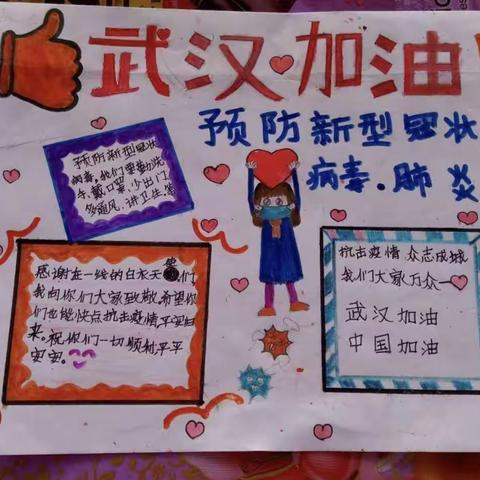 武汉·加油!
预防新型冠状
病毒.肺炎
预防新型冠状
病毒,我们要勤洗
手、戴口罩,少出门
多通风,讲卫生。
感谢在一线的白衣天使们
我向你们大家致敬,希望你
们也能快点抗击疫情,平安归
来。祝你们一切顺利,平平
安安。
抗击疫情,众志成城
我们大家万众一
武汉加油
中国加油